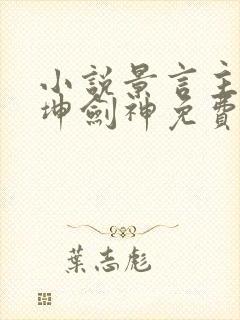 小說景言主
坤劍神免費
葉志彪